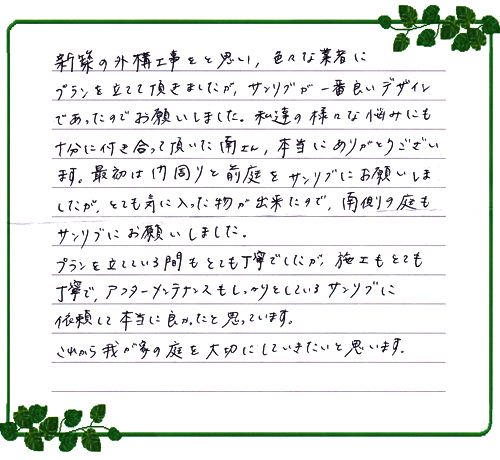 新築の外構工事をと思い、色々な業者に
プランを立てて頂きましたが、サンリブが一番良いデザイン
であったのでお願いしました。私達の様々な悩みにも
十分に付き合って頂いた南さん、本当にありがとうござい
ます。最初は門周りと前庭をサンリブにお願いしま
したが、とても気に入った物が出来たので、南側の庭も
サンリブにお願いしました。
プランを立てている間もとても丁寧でしたが、施工もとても
丁寧で、アフターメンテナンスもしっかりとしているサンリブに
依頼して本当に良かったと思っています。
これから我が家の庭を大切にしていきたいと思います。